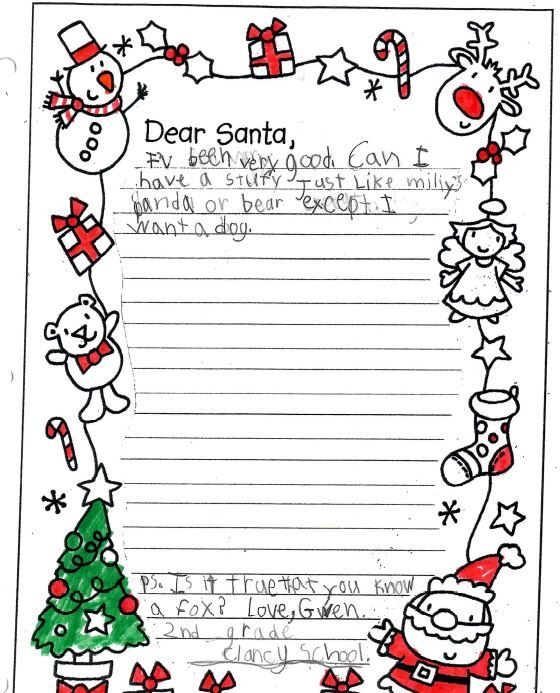 Dear Santa,
Fv been very good Can I
have a stufy Just Like miliy's
panda or bear except I
want a dog.
ps. Is it true that you know
a fox? Love, Gwen.
2nd grade
Clancy School.